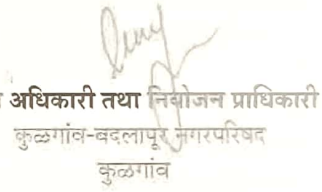 अधिकारी तथा नियोजन प्राधिकारी
कुळगांव-बदलापूर नगरपरिषद
कुळगांव